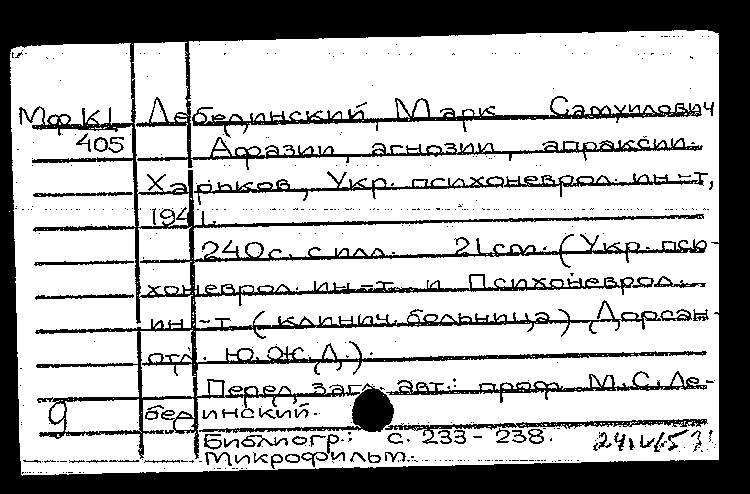 Мф К1 Лебединский, Марк Самуилович
405 Афазии, агнозии, апраксии.
Харьков, Укр. психоневрол. ин-т,
1941.
240с. с илл. 21cm. (Укр. пси-
хоневрол. ин-т и Психоневрол.
ин-т (клинич. больница) Дорсан-
отд. Ю.Ж.Д.).
Перед загл. авт.: проф. М.С.Ле-
9 бединский.
Библиогр.: с. 233-238.
Микрофильм.